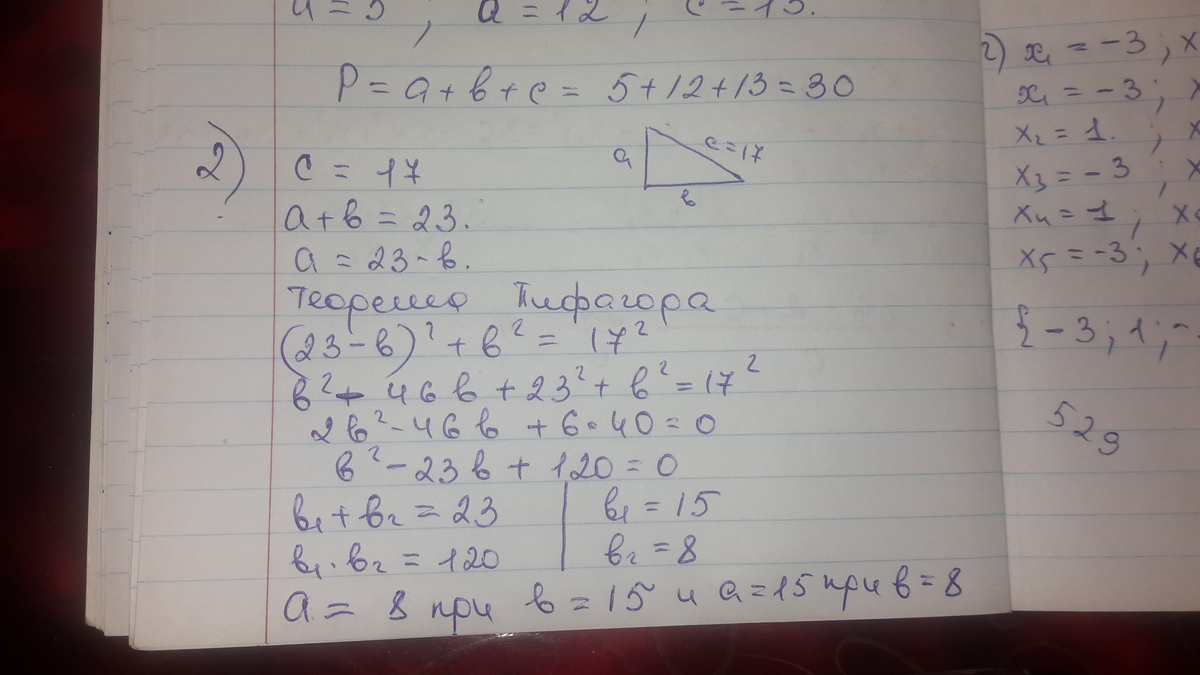 a = 5 ; a = 12 ; c = 13.
P = a + в + c = 5 + 12 + 13 = 30
2)
c = 17
a
c = 17
в
a + в = 23.
a = 23 - в.
Теорема Пифагора
(23 - в)² + в² = 17²
в² - 46 в + 23² + в² = 17²
2в² - 46 в + 6 • 40 = 0
в² - 23 в + 120 = 0
в₁ + в₂ = 23
в₁ = 15
в₁ · в₂ = 120
в₂ = 8
a = 8 при в = 15 и a = 15 при в = 8
г) x₁ = -3 ; x
x₁ = -3 ;
x₂ = 1. ; x
x₃ = -3 ; x
x₄ = 1 ; x
x₅ = -3 ; x₆
{ -3 ; 1 ; -
529